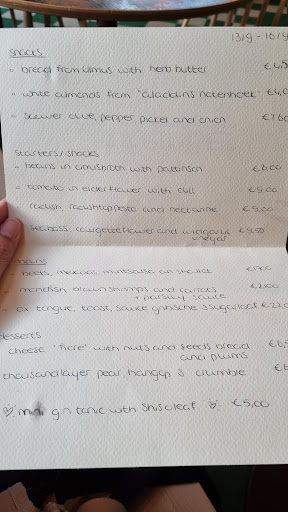 13/9 - 16/9
snacks
• bread from Ulmus with herb butter €4,5
• white almonds from "Aladdins notenhoek" €4,0
• skewer olive, pepper, pickel and onion €7,60
starters/snacks
• beans in with €6,00
• tomato in elderflower with dill €9,00
radish, radishtop pesto and nectarine €9,00
seabass, courgetteflower and vinegar €9,50
mains
• beets, and shallot
• monkfish, brown shrimps and carrots €21,00
+ parsley sauce
• ox tongue, toast, sauce gribiche & sugarloaf €22,0
desserts
cheese "fiore" with nuts and seeds bread €6,5
and plums
thousand layer pear, hangop & crumble €6
mini g.n. tonic with shiso leaf €5,00